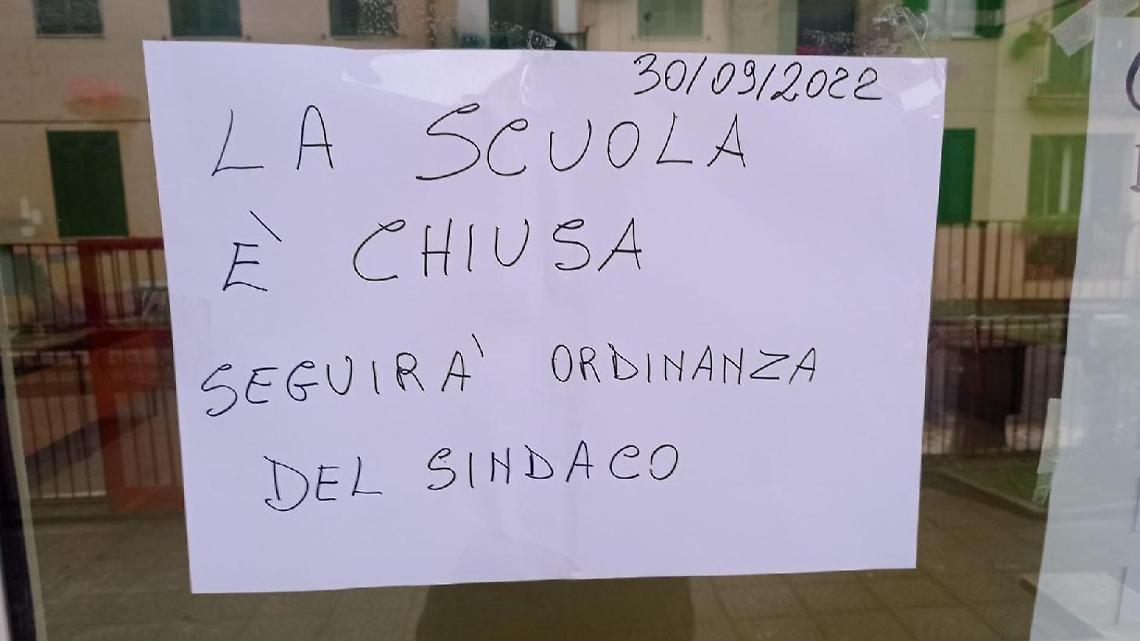 30/09/2022
LA SCUOLA
È CHIUSA
SEGUIRA' ORDINANZA
DEL SINDACO